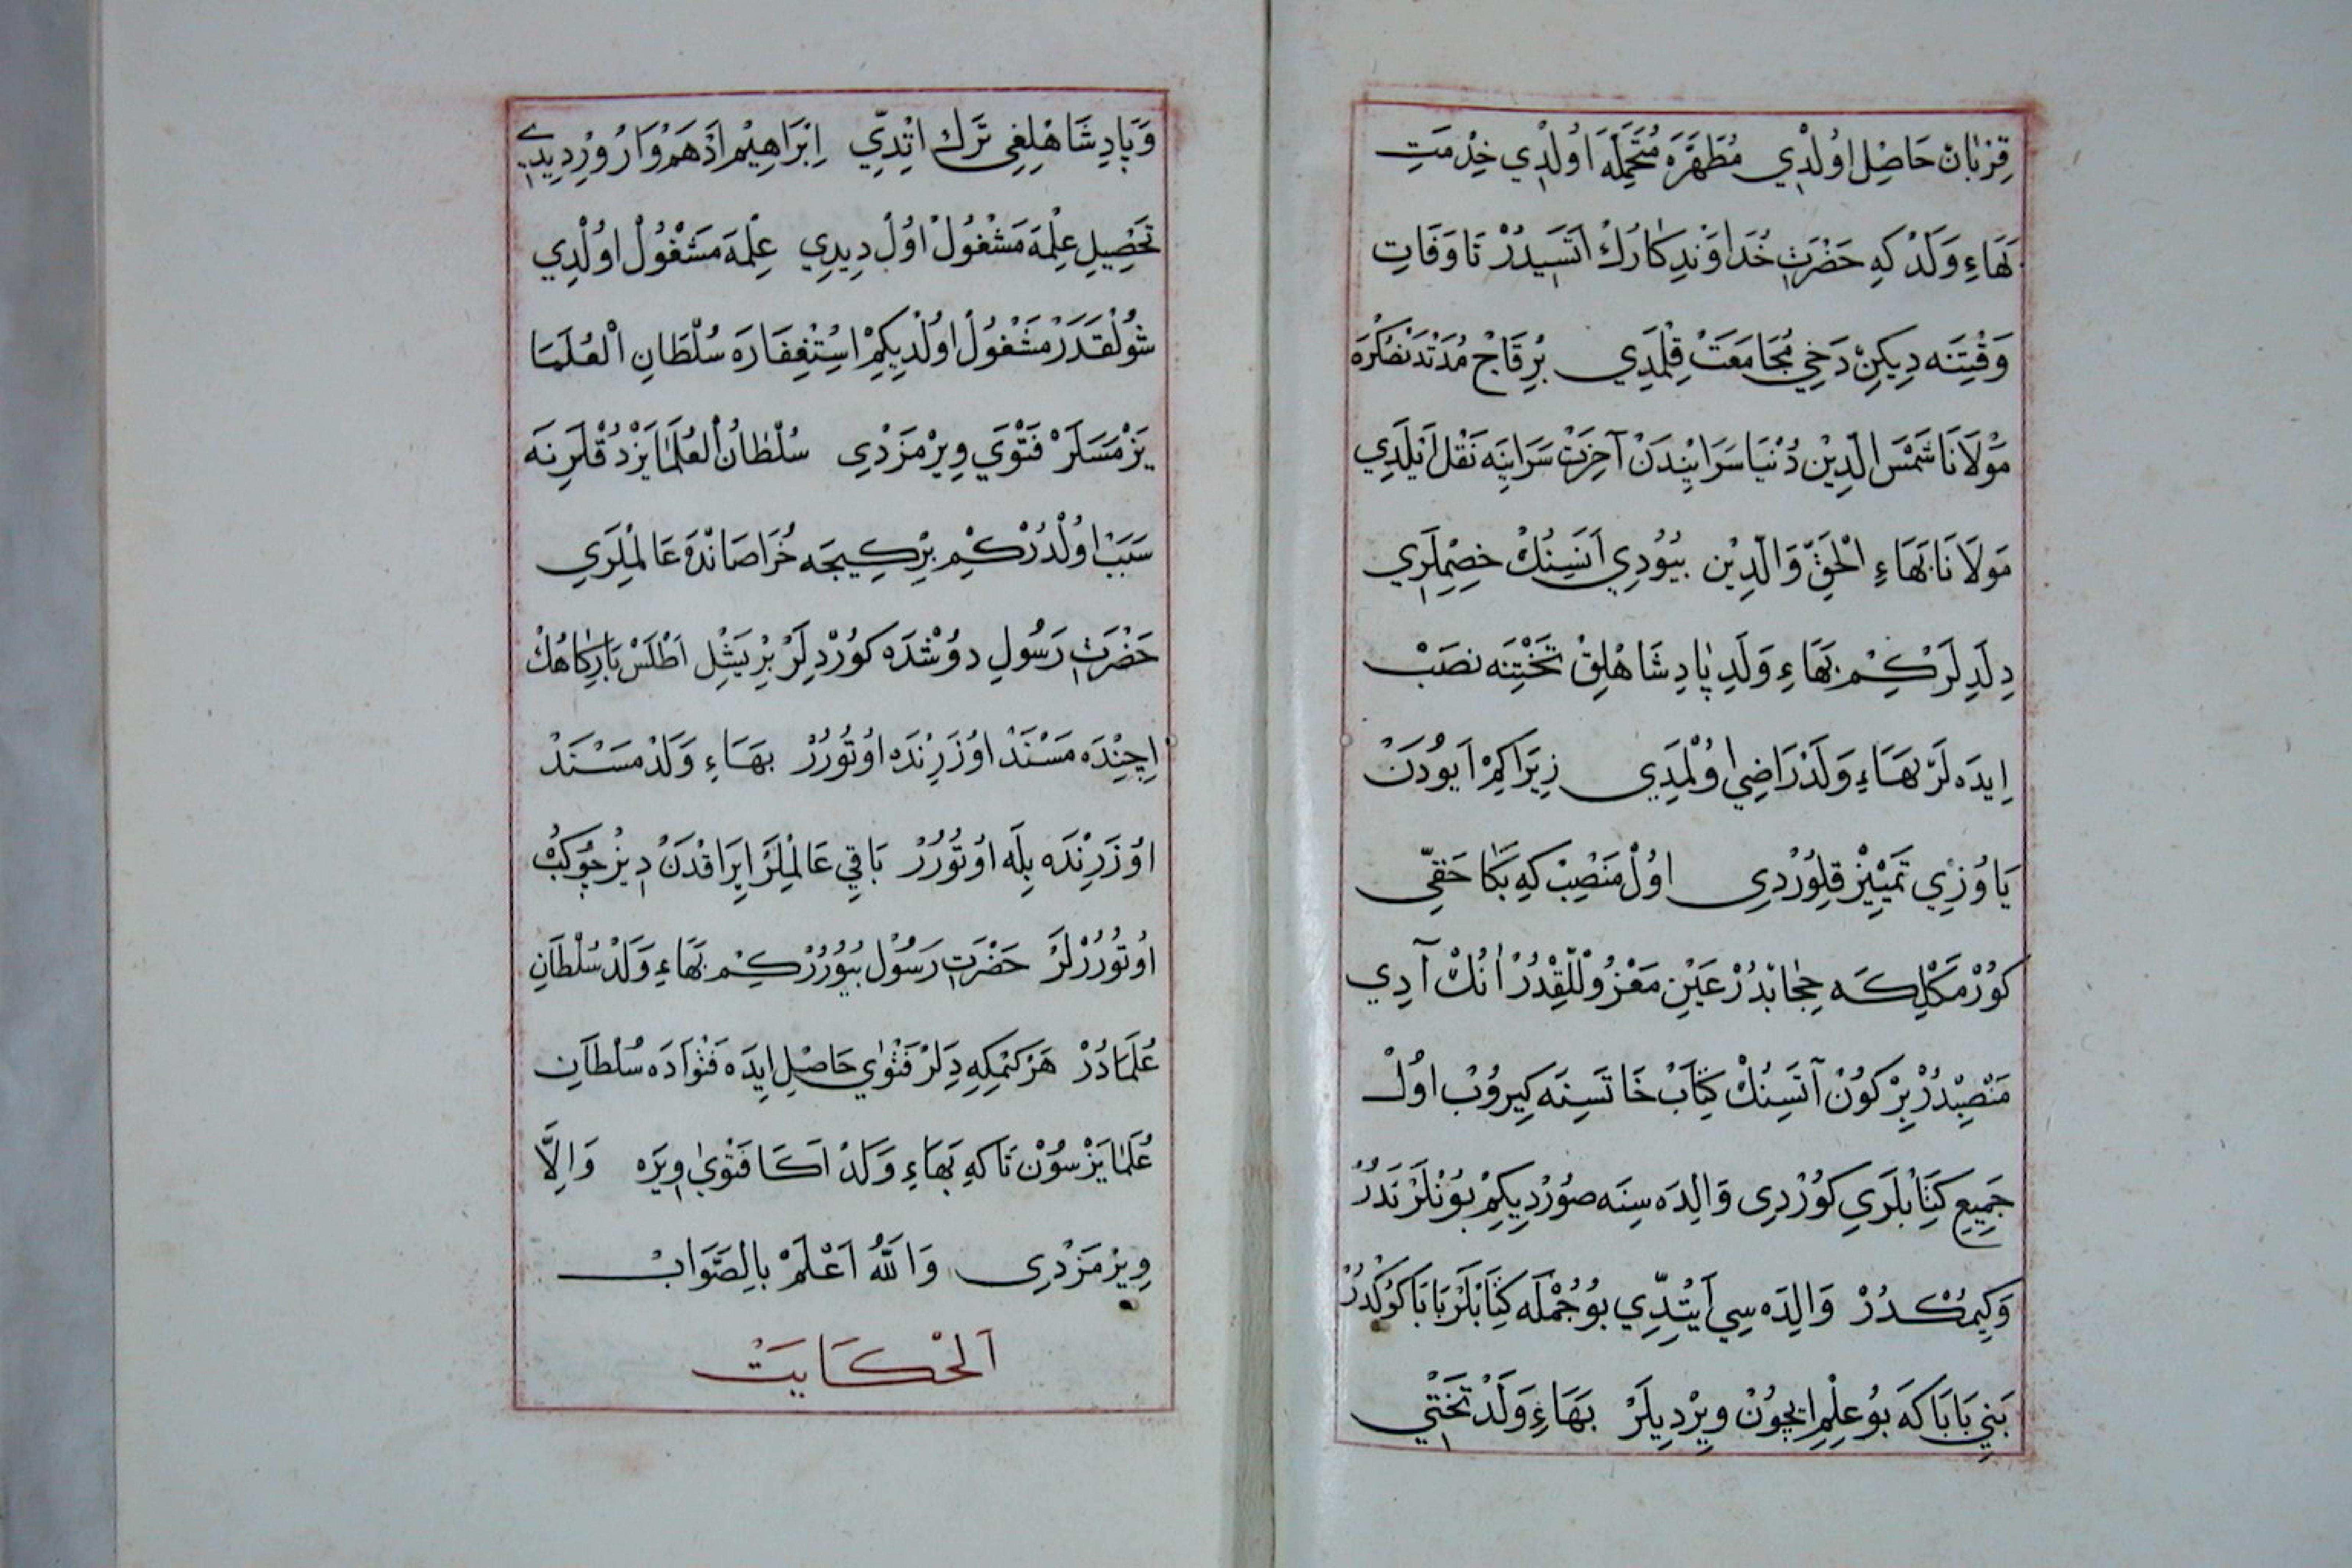 قِزْبَانْ حَاصِل اوُلْدِي مُطَهَّرَه مُتَحَمِّلَه اوُلدِي خِدْمَتِ
بَهَاءِ وَلَدْ كِه حَضْرَتِ خُدَاوَنْدِكَارُكْ اَتَسِيدُرْ تَا وَفَاتِ
وَقْتِنَه دِيكِنْ دَخِي مُجَامَعَتْ قِلْمَدِي بِرْقَاجْ مُدَّتْدَنْصُكْرَه
مَوْلَانَا شَمْسَ الدِّيْن دُنْيَا سَرَايِنْدَنْ آخِرَتْ سَرَايِنَه نَقْل اَيْلَدِي
مَولَانَا بَهَاءِ الْحَقِّ وَالدِّيْن بُيُوُدِي اَنَسِنُكْ خِصِمْلَرِي
دِلَدِلَرْكِمْ بَهَاءِ وَلَدِ پَادِشَاهْلِقْ تَخْتِنَه نصَبْ
اِيدَه لَرْ بَهَاءِ وَلَدْ رَاضِي اوُلْمَدِي زِيرَاكِمْ اَيُودَنْ
يَاوُزِي تَمْيِيْزْ قِلُوْرْدِي اوُلْ مَنْصِبْ كِه بَكَا حَقِّ
كوُرْمَكْلِكَه حِجَابْدُرْ عَيْنِ مَعْزُوْللِّقْدُرْ اَنُكْ آدِي
مَنْصِبْدُرْ بِرْ كوُنْ آتَسِنُكْ كِتَابْ خَاتَسِنَه كِيرُوْب اوُلْ
جَمِيعِ كِتَابْلَرِي كوُرْدِي وَالِدَه سِنَه صوُرْدِيكِمْ بوُنْلَرْ نَدُرْ
وَكِيمُكْدُرْ وَالِدَه سِي اَيْتِدِّي بوُ جُمْلَه كِتَابْلَرْ بَابَاكوُكْدُرْ
بَنِي بَابَاكَه بُو عِلِمْ اِيچُوْنْ وِيرْدِيلَرْ بَهَاءِ وَلَدْ تَخْتِي
وَپَادِشَاهْلِغِي تَرَكْ اتِدِّي اِبْرَاهِيْم اَدْهَمْوَارْ وُرْدِيدِي
تَحْصِيلِ عِلْمَه مَشْغُولْ اوُلْ دِيدِي عِلْمَه مَشْغُولْ اوُلْدِي
شوُلْقَدَرْ مَشْغُولْ اوُلْدِيكِمْ اسْتِغْفَارَه سُلْطَانِ الْعُلَمَا
يَزْمَسَلَرْ فَتْوَي وِيرْمَزْدِي سُلْطَانُ الْعُلَمَا يَزْدُقْلَرِنَه
سَبَبْ اوُلْدُرْكِمْ بِرْكِيجَه خُرَاصَانْدَه عَالِمْلَرِي
حَضْرَتِ رَسُولِ دوُشْدَه كوُرْدِلَرْ بِرْ يَشِلْ اَطْلَسْ بَارِكَاهُكْ
اِچِنْدَه مَسْنَدْ اوُزَرِنْدَه اوُتُوُرُرْ بَهَاءِ وَلَدْ مَسْنَدْ
اوُزَرِنْدَه بِلَه اوُتُوُرُرْ بَاقِي عَالِمْلِرَ اِيرَاقْدَنْ دِيزْچوُكُبْ
اوُتُوُرُرْلَرْ حَضْرَتِ رَسُوْل بُيُوُرُرْكِمْ بَهَاءِ وَلَدْ سُلْطَانِ
عُلَمَادُرْ هَرْكِمْكِه دِلَرْ فَتْوٰي حَاصِل اِيدَه فَتْوَادَه سُلْطَانِ
عُلَمَا يَزْسوُنْ تَاكِه بَهَاءِ وَلَدْ اَكَا فَتْوٰي وِيرَه وَاِلَّا
وِيرْمَزْدِي وَاللّٰهُ اَعْلَمْ بِالصَّوَابْ
اَلْحْكَايَتْ